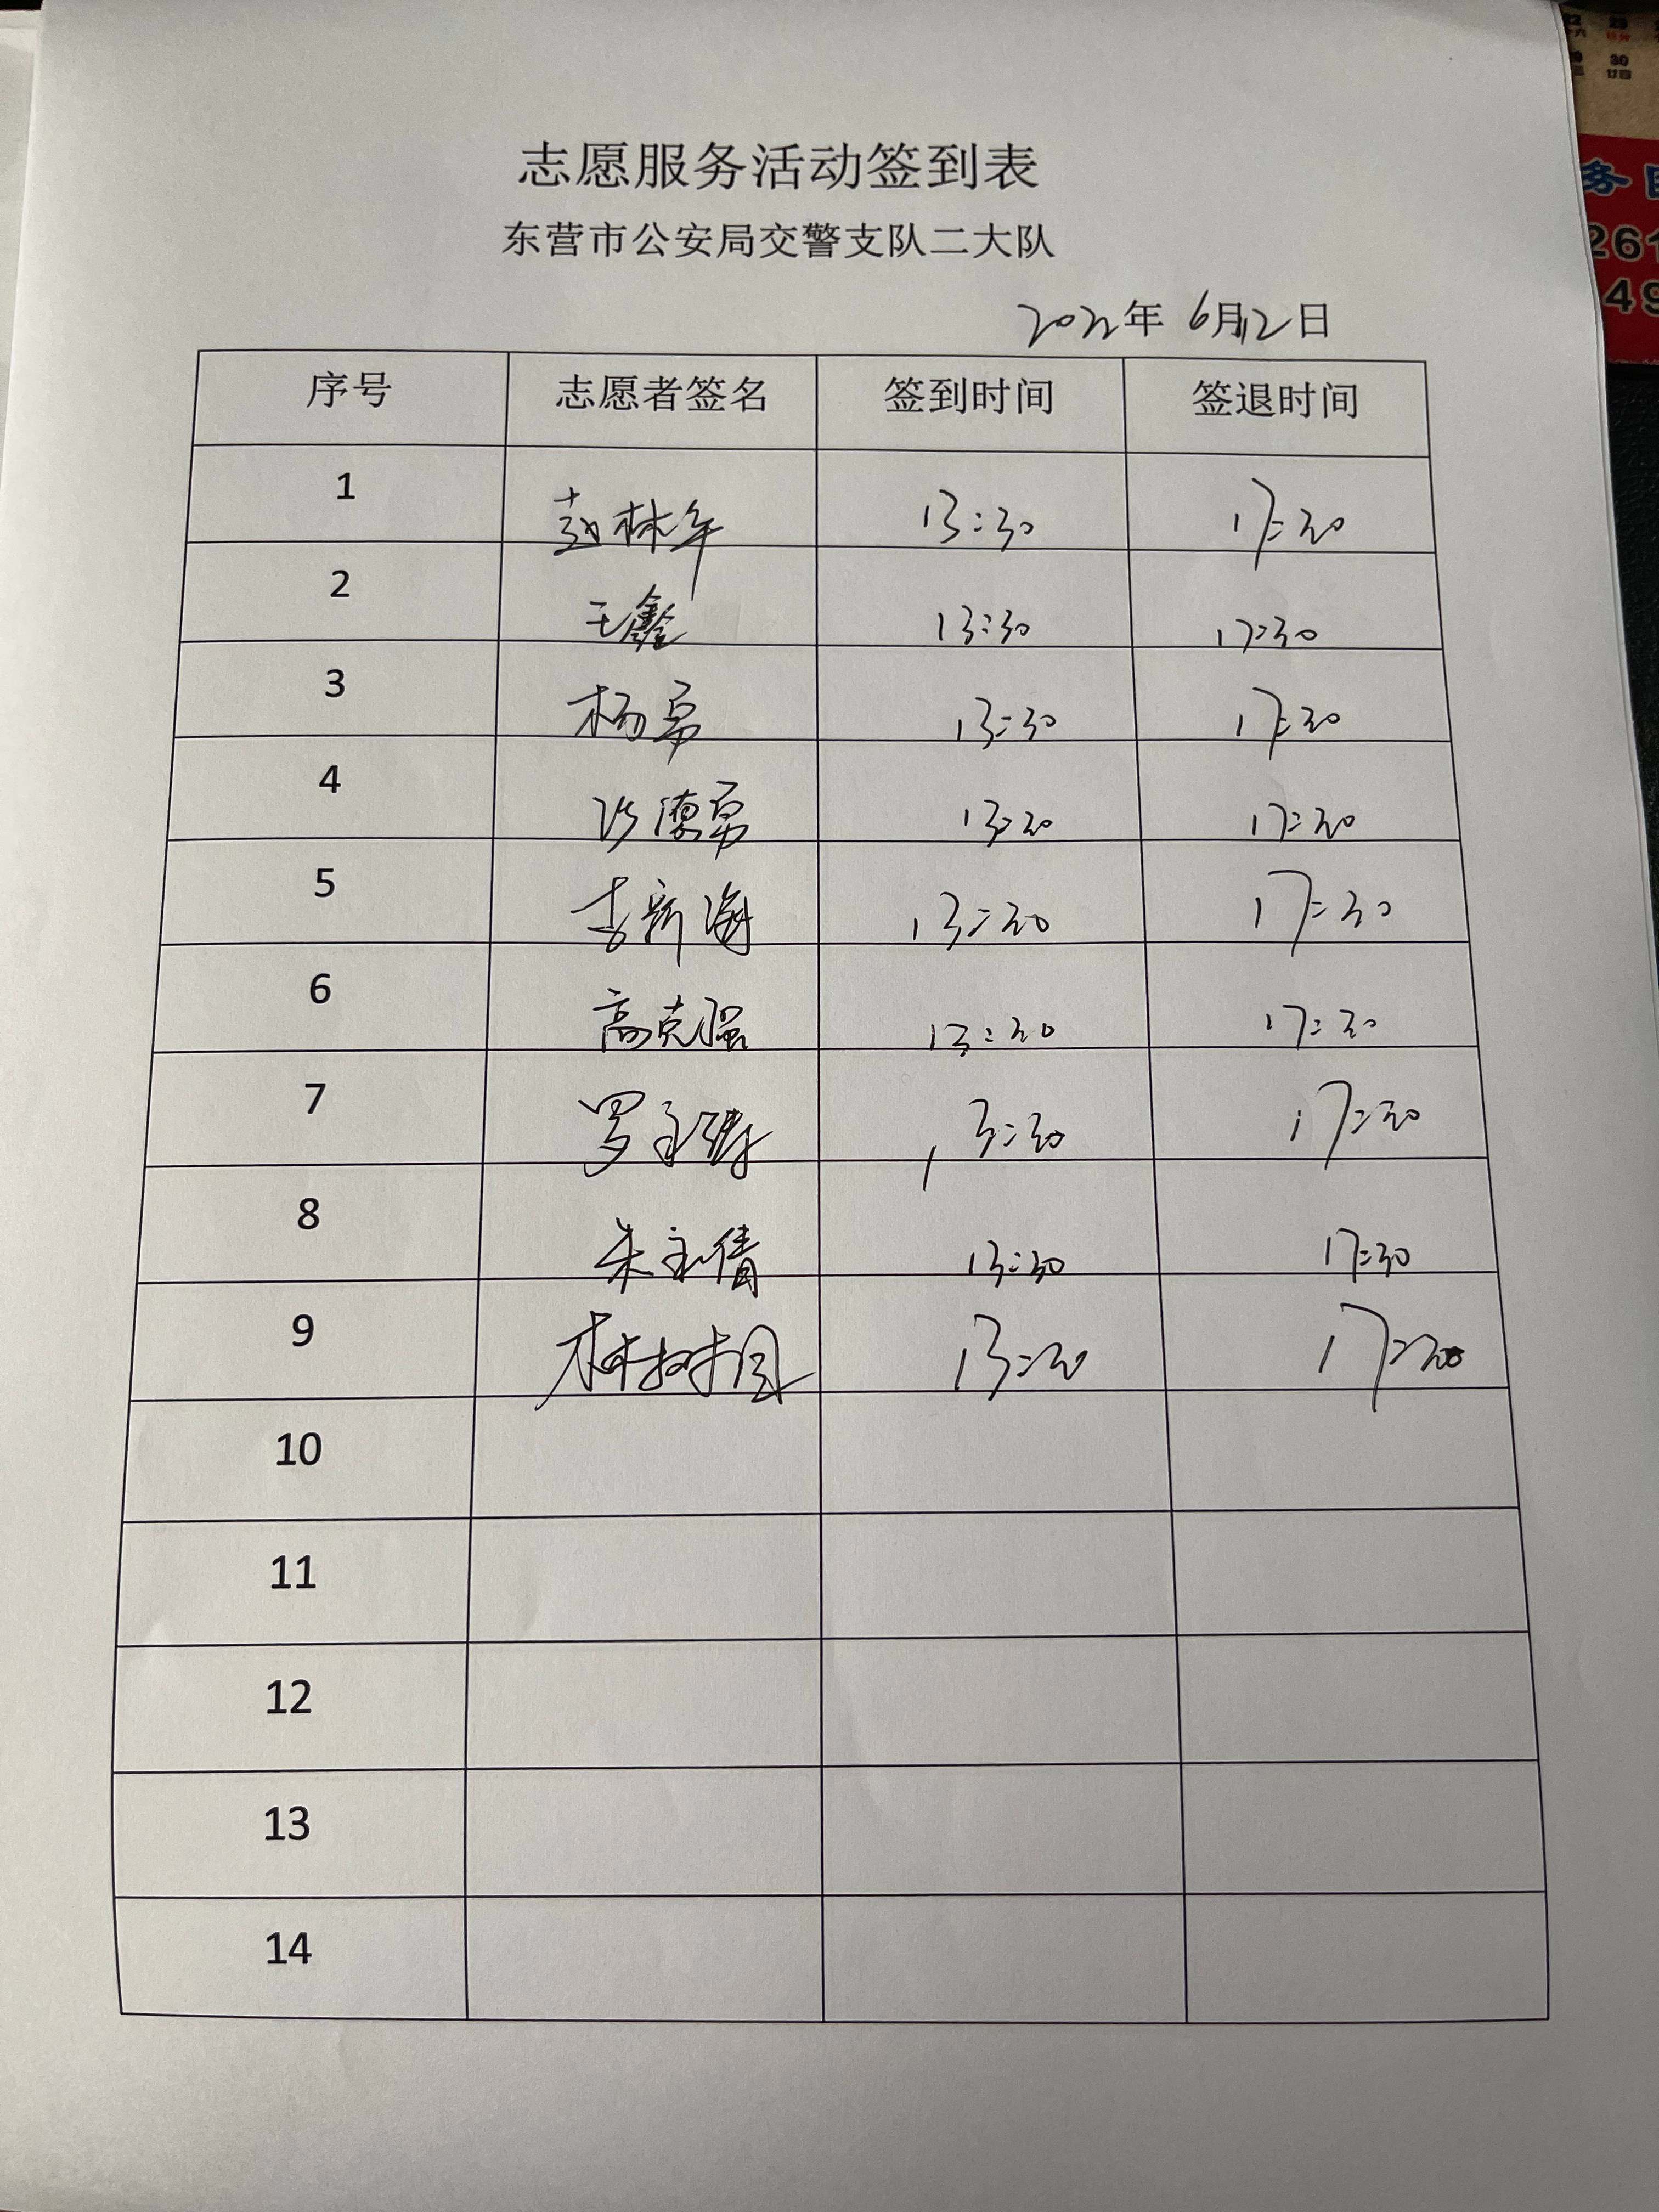 志愿服务活动签到表
东营市公安局交警支队二大队
2022年 6月12日
序号 志愿者签名 签到时间 签退时间
1 赵林年 13:30 17:30
2 王鑫 13:30 17:30
3 杨勇 13:30 17:30
4 德勇 13:30 17:30
5 李新海 13:30 17:30
6 高克强 13:30 17:30
7 罗 13:30 17:30
8 朱 倩 13:30 17:30
9 13:30 17:30
10
11
12
13
14
29
30
廿四
务
261
49